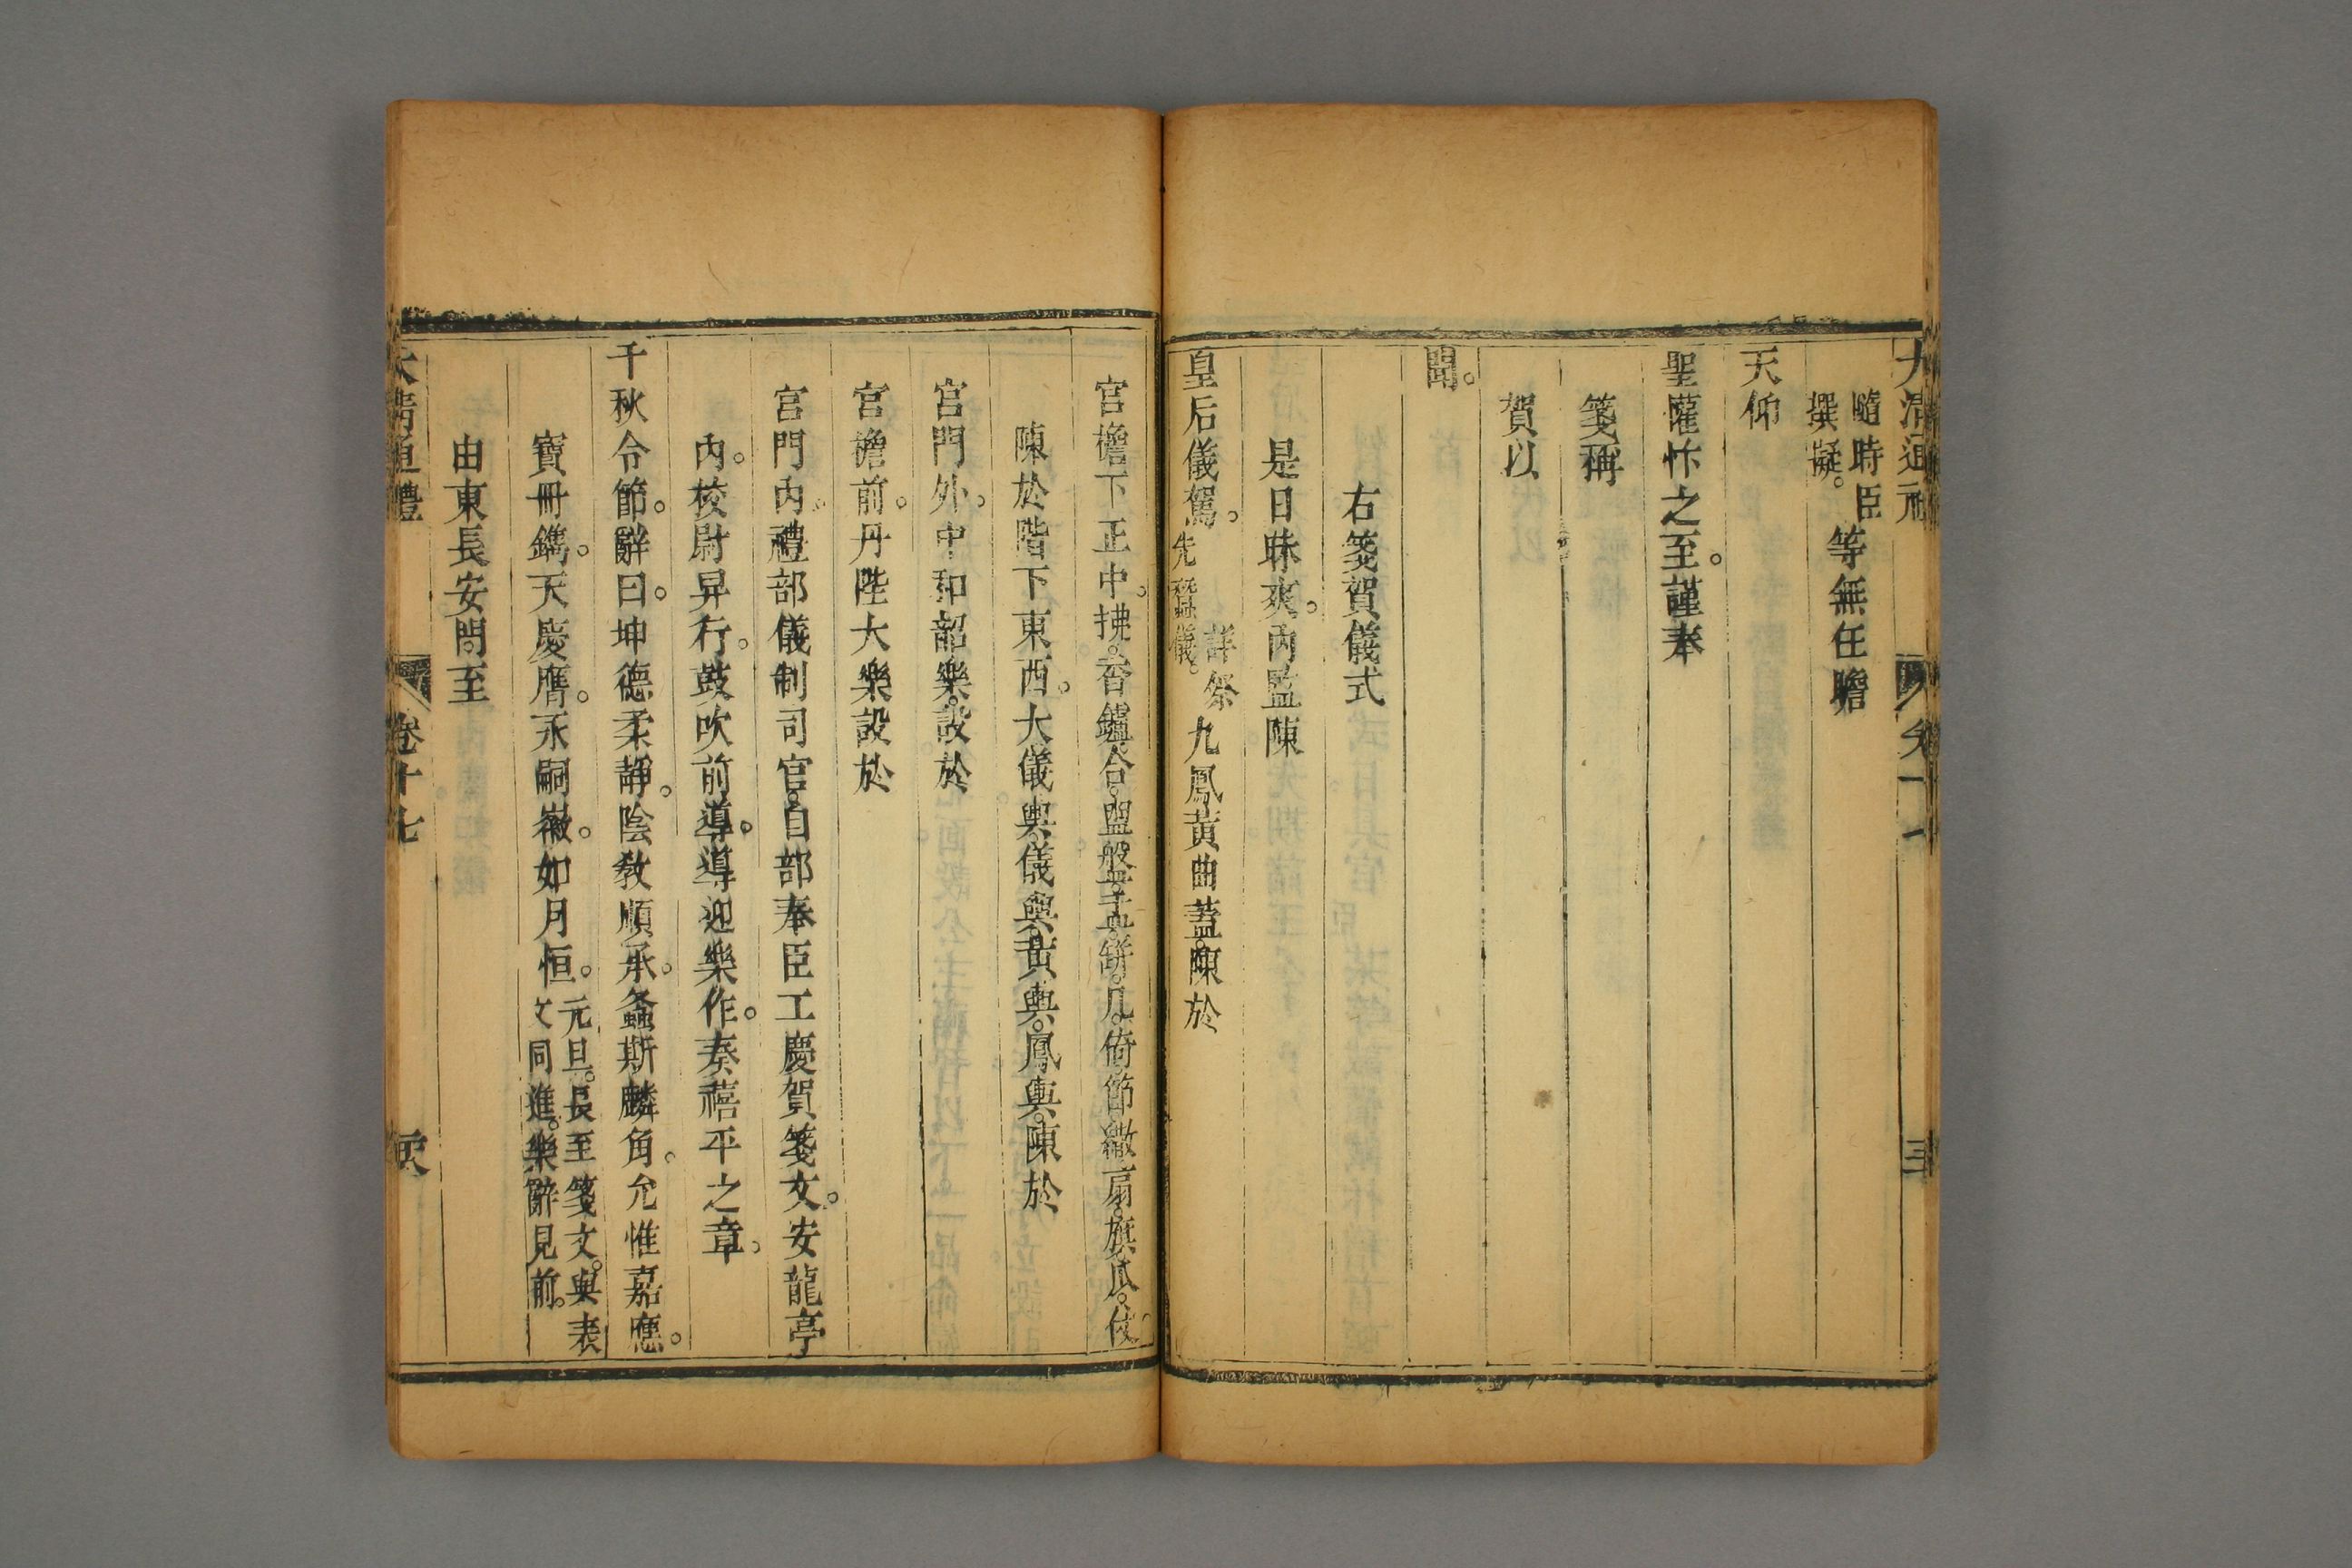 隨時撰擬。臣等無任瞻
天仰
聖懽忭之至。謹奉
箋稱
賀以
聞。
右箋賀儀式
是日昧爽。內監陳
皇后儀駕。詳祭先蠶儀。九鳳黃曲蓋。陳於
宮檐下正中。拂。香鑪。合。盥盤。盂。缾。几。倚。節。繖。扇。旗。瓜。仗。
陳於階下東西。大儀輿。儀輿。黃輿。鳳輿。陳於
宮門外。中和韶樂。設於
宮檐前。丹陛大樂設於
宮門內。禮部儀制司官。自部奉臣工慶賀箋文。安龍亭
內。校尉舁行。鼓吹前導。導迎樂作。奏禧平之章。
千秋令節。辭曰。坤德柔靜。陰教順承。螽斯麟角。允惟嘉應。
寶冊鐫。天慶膺。永嗣徽。如月恒。元旦。長至箋文。與表文同進。樂辭見前。
由東長安門至
大清通禮 卷十七